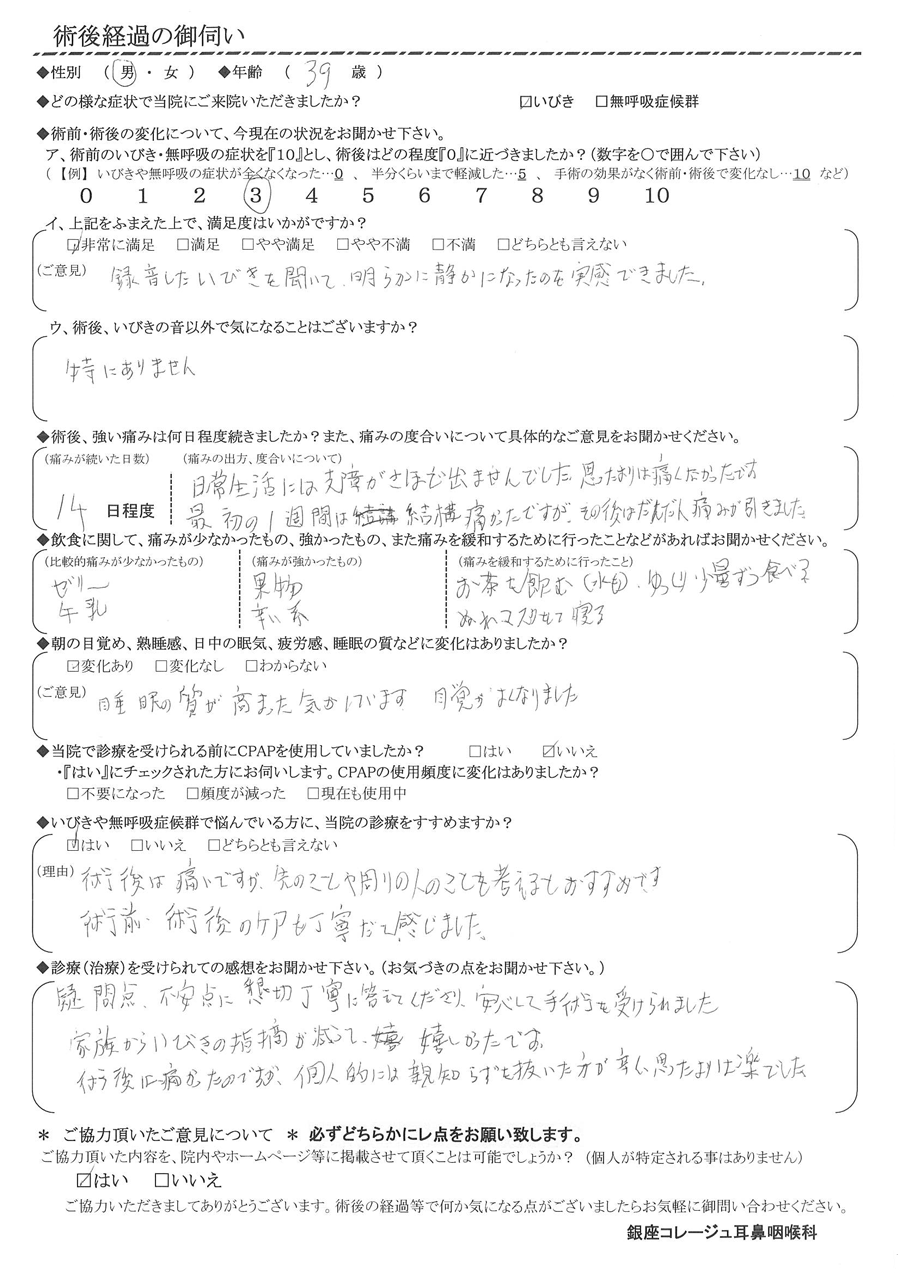 術後経過の御伺い
◆性別 ( 男 ・ 女 ) ◆年齢 ( 39 歳 )
◆どの様な症状で当院にご来院いただきましたか? ☑いびき □無呼吸症候群
◆術前・術後の変化について、今現在の状況をお聞かせ下さい。
ア、術前のいびき・無呼吸の症状を『10』とし、術後はどの程度『0』に近づきましたか?(数字を○で囲んで下さい)
( 【例】 いびきや無呼吸の症状が全くなくなった…0 、 半分くらいまで軽減した…5 、 手術の効果がなく術前・術後で変化なし…10 など)
0 1 2 3 4 5 6 7 8 9 10
イ、上記をふまえた上で、満足度はいかがですか?
☑非常に満足 □満足 □やや満足 □やや不満 □不満 □どちらとも言えない
(ご意見) 録音したいびきを聞いて、明らかに静かになったのを実感できました。
ウ、術後、いびきの音以外で気になることはございますか?
特にありません
◆術後、強い痛みは何日程度続きましたか?また、痛みの度合いについて具体的なご意見をお聞かせください。
(痛みが続いた日数) (痛みの出方、度合いについて)
日常生活には支障がさほど出ませんでした 思たよりは痛くなかったです
14 日程度 最初の1週間は 結構痛かったですが、その後はだんだん痛みが引きました
◆飲食に関して、痛みが少なかったもの、強かったもの、また痛みを緩和するために行ったことなどがあればお聞かせください。
(比較的痛みが少なかったもの) (痛みが強かったもの) (痛みを緩和するために行ったこと)
ゼリー 果物 お茶を飲む(水も)・ゆっくり少量ずつ食べる
牛乳 辛い系 ぬれマスクをして寝る
◆朝の目覚め、熟睡感、日中の眠気、疲労感、睡眠の質などに変化はありましたか?
☑変化あり □変化なし □わからない
(ご意見) 睡眠の質が高まった気がしています 目覚がよくなりました
◆当院で診療を受けられる前にCPAPを使用していましたか? □はい ☑いいえ
・『はい』にチェックされた方にお伺いします。CPAPの使用頻度に変化はありましたか?
□不要になった □頻度が減った □現在も使用中
◆いびきや無呼吸症候群で悩んでいる方に、当院の診療をすすめますか?
☑はい □いいえ □どちらとも言えない
(理由) 術後は痛いですが、先のことや周りの人のことを考えるとおすすめです
術前・術後のケアも丁寧だと感じました。
◆診療(治療)を受けられての感想をお聞かせ下さい。(お気づきの点をお聞かせ下さい。)
疑問点、不安点に懇切丁寧に答えてくださり、安心して手術を受けられました
家族からいびきの指摘が減って、嬉しかったです。
術後は痛かったのですが、個人的には親知らずを抜いた方が辛く、思たよりは楽でした
* ご協力頂いたご意見について * 必ずどちらかにレ点をお願い致します。
ご協力頂いた内容を、院内やホームページ等に掲載させて頂くことは可能でしょうか? (個人が特定される事はありません)
☑はい □いいえ
ご協力いただきましてありがとうございます。術後の経過等で何か気になる点がございましたらお気軽に御問い合わせください。
銀座コレージュ耳鼻咽喉科